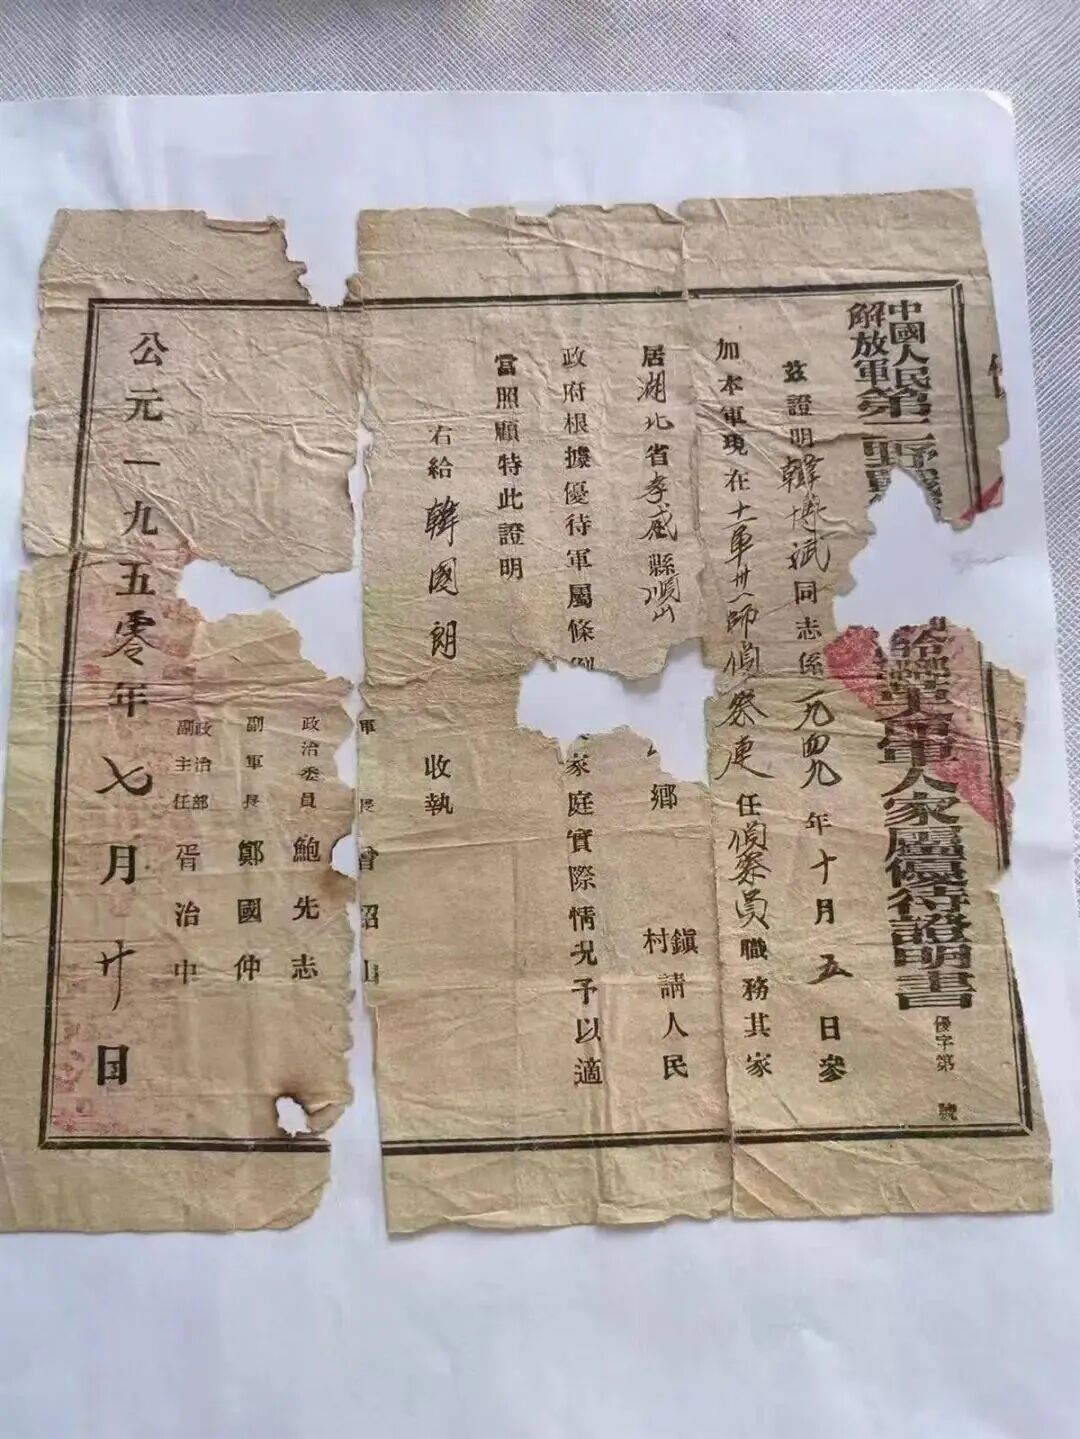 中國人民
解放軍第二野戰
軍人家屬優待證明書
優字第 號
茲證明韓博斌同志係一九四九年十月五日參
加本軍現在十一軍卅一師偵察連任偵察員職務其家
居湖北省孝感縣順 鄉 村鎮請人民
政府根據優待軍屬條例 家庭實際情況予以適
當照顧特此證明
右給韓國朗 收執
軍長曾紹山
政治委員鮑先志
副軍長鄭國仲
政治部副主任胥治中
公元一九五零年七月廿日